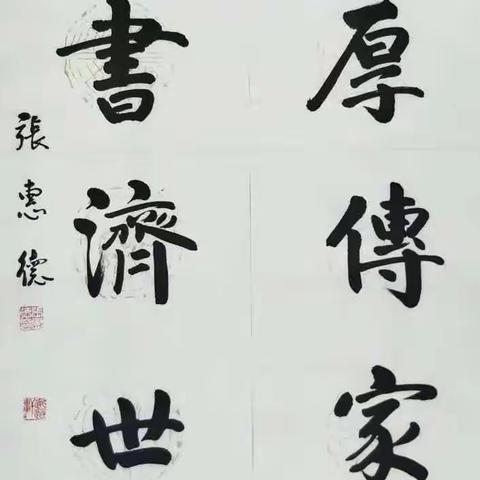 厚傳家
書濟世
張惠德